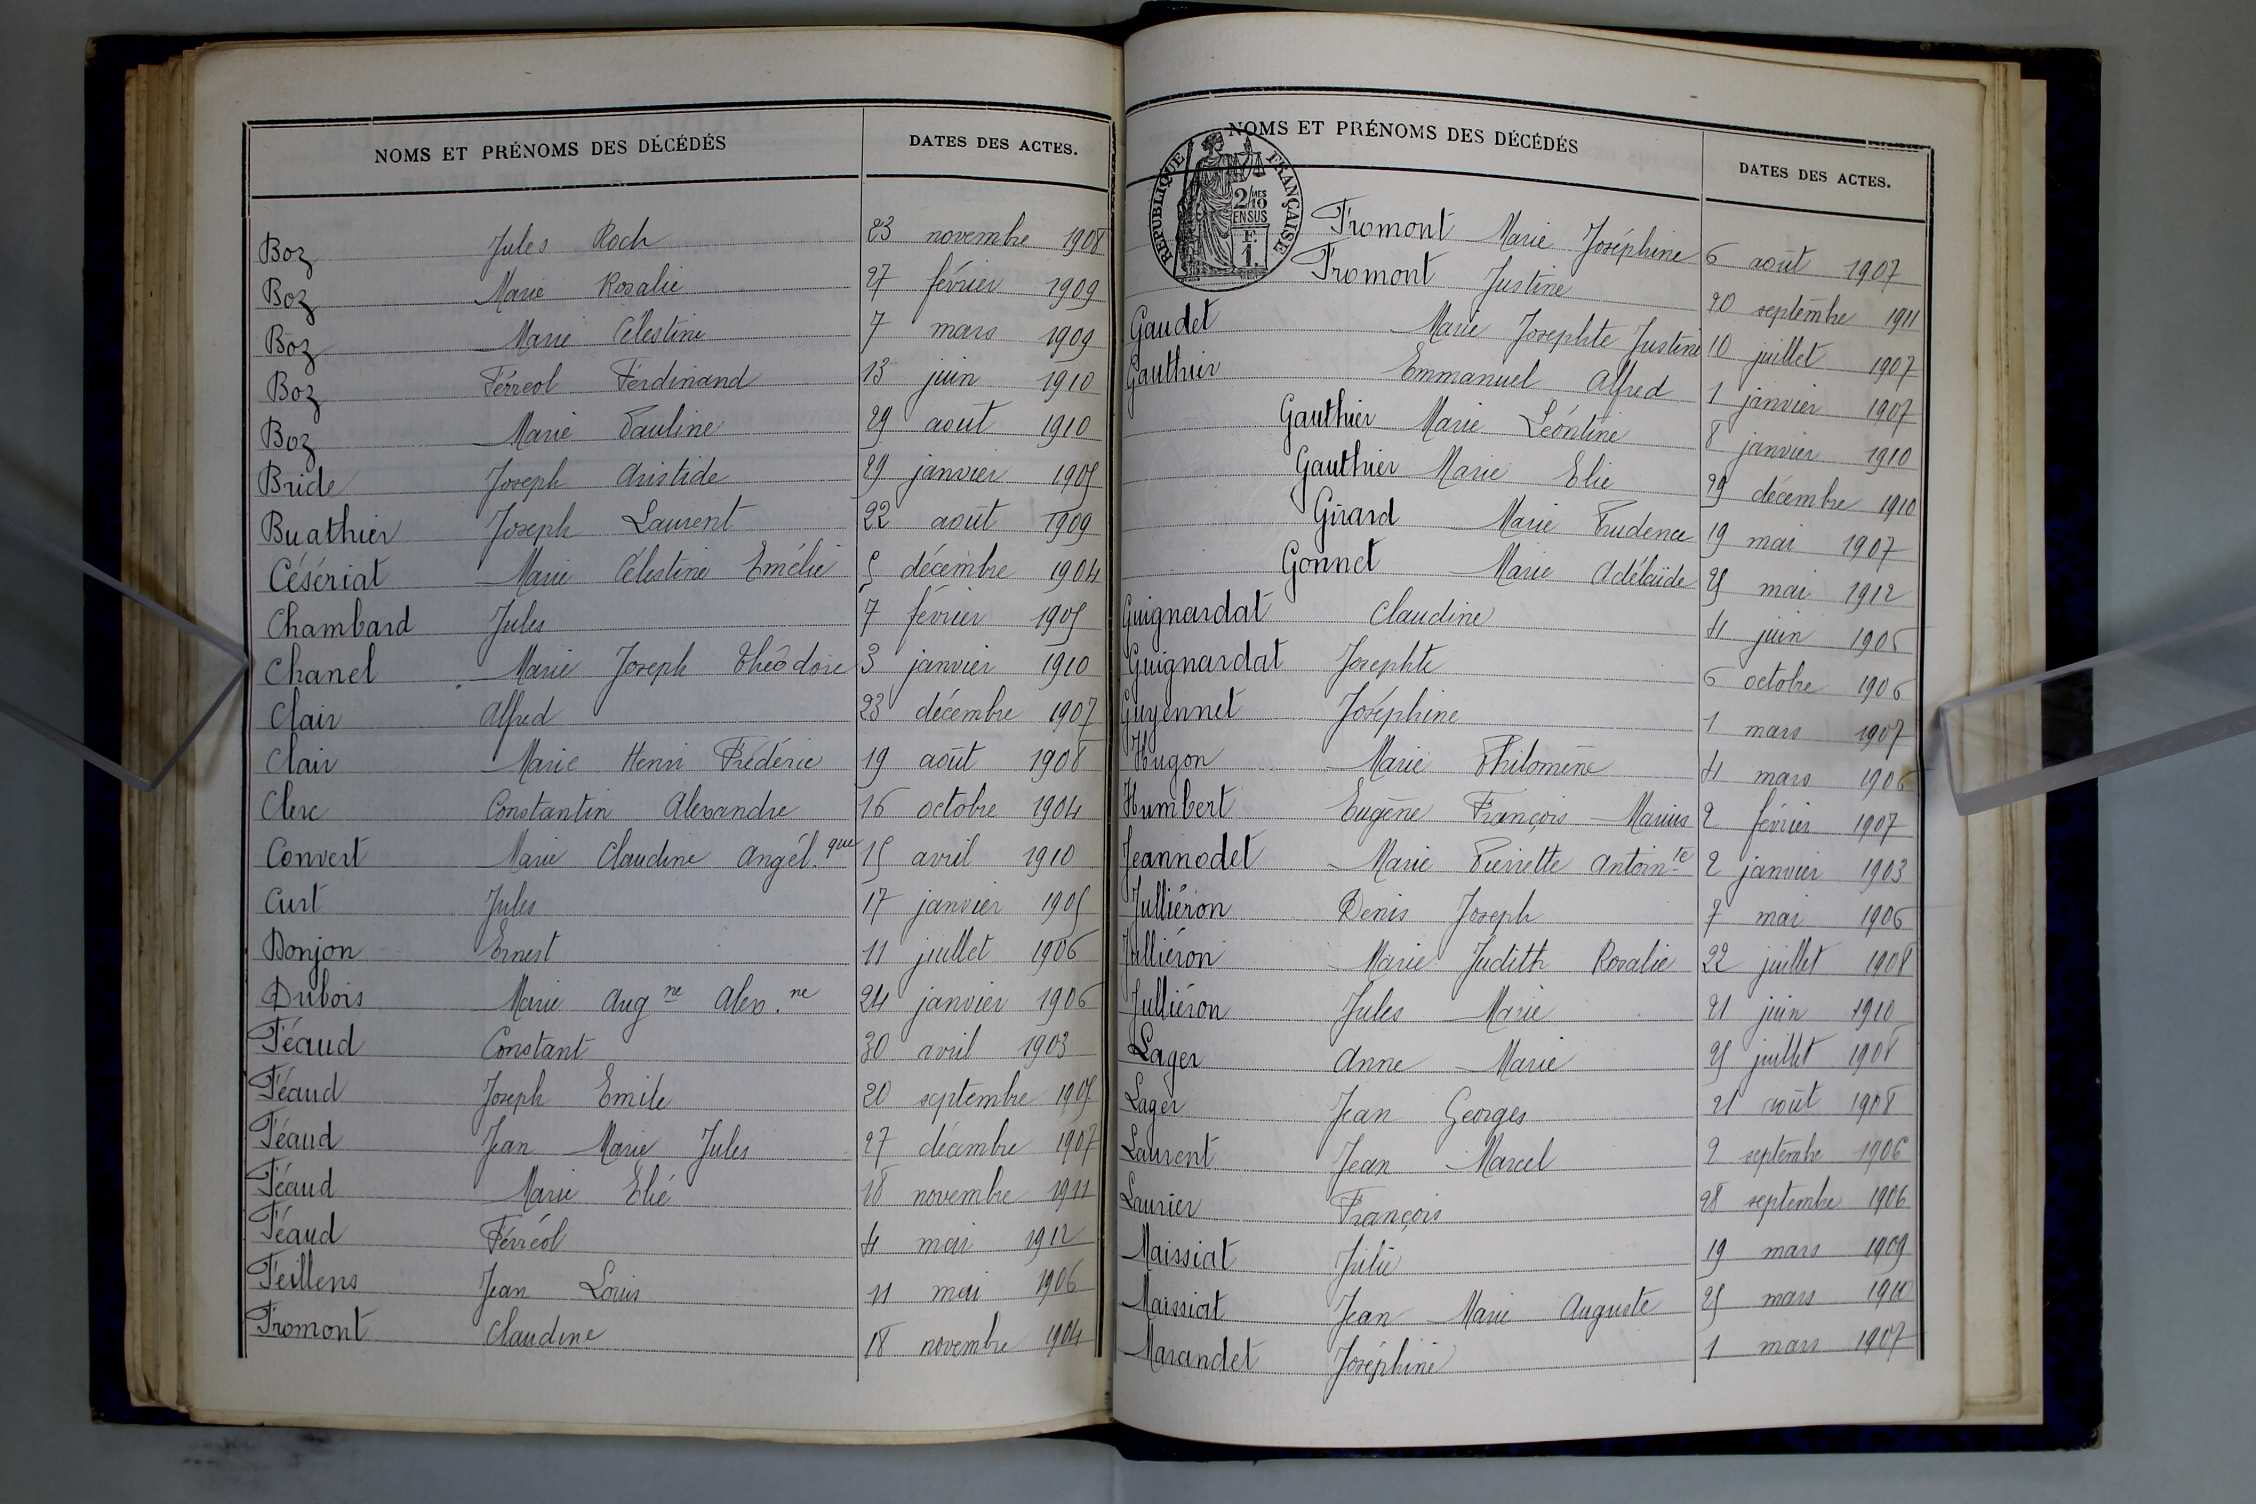 NOMS ET PRÉNOMS DES DÉCÉDÉS DATES DES ACTES.
Boz Jules Roch 23 novembre 1908
Boz Marie Rosalie 27 février 1909
Boz Marie Célestine 7 mars 1909
Boz Férréol Ferdinand 13 juin 1910
Boz Marie Pauline 29 août 1910
Bride Joseph Aristide 29 janvier 1905
Buathier Joseph Laurent 22 août 1909
Césériat Marie Célestine Emélie 5 décembre 1904
Chambard Jules 7 février 1905
Chanel Marie Joseph Théodore 3 janvier 1910
Clair Alfred 23 décembre 1907
Clair Marie Henri Frédéric 19 août 1908
Clerc Constantin Alexandre 16 octobre 1904
Convert Marie Claudine Angél.que 15 avril 1910
Curt Jules 17 janvier 1905
Donjon Ernest 11 juillet 1906
Dubois Marie Aug ne Alex.ne 24 janvier 1906
Féaud Constant 30 avril 1903
Féaud Joseph Emile 20 septembre 1905
Féaud Jean Marie Jules 27 décembre 1907
Féaud Marie Elié 18 novembre 1911
Féaud Férréol 4 mai 1912
Feillens Jean Louis 11 mai 1906
Fromont Claudine 18 novembre 1904
NOMS ET PRÉNOMS DES DÉCÉDÉS DATES DES ACTES.
RÉPUBLIQUE FRANÇAISE
2/10 MES
EN SUS
F.
1.
Fromont Marie Joséphine 6 août 1907
Fromont Justine 20 septembre 1911
Gaudet Marie Josephte Justine 10 juillet 1907
Gauthier Emmanuel Alfred 1 janvier 1907
Gauthier Marie Léontine 8 janvier 1910
Gauthier Marie Elie 29 décembre 1910
Girard Marie Prudence 19 mai 1907
Gonnet Marie Adélaïde 25 mai 1912
Guignardat Claudine 4 juin 1906
Guignardat Josephte 6 octobre 1906
Guyennet Joséphine 1 mars 1907
Hugon Marie Philomène 4 mars 1906
Humbert Eugène François Marius 2 février 1907
Jeannodet Marie Pierrette Antoin.te 2 janvier 1903
Julliéron Denis Joseph 7 mai 1906
Julliéron Marie Judith Rosalie 22 juillet 1908
Julliéron Jules Marie 21 juin 1910
Lager Anne Marie 25 juillet 1908
Lager Jean Georges 21 août 1908
Laurent Jean Marcel 2 septembre 1906
Laurier François 28 septembre 1906
Maissiat Julie 19 mars 1909
Maissiat Jean Marie Auguste 25 mars
Marandet Joséphine 1 mars 1907